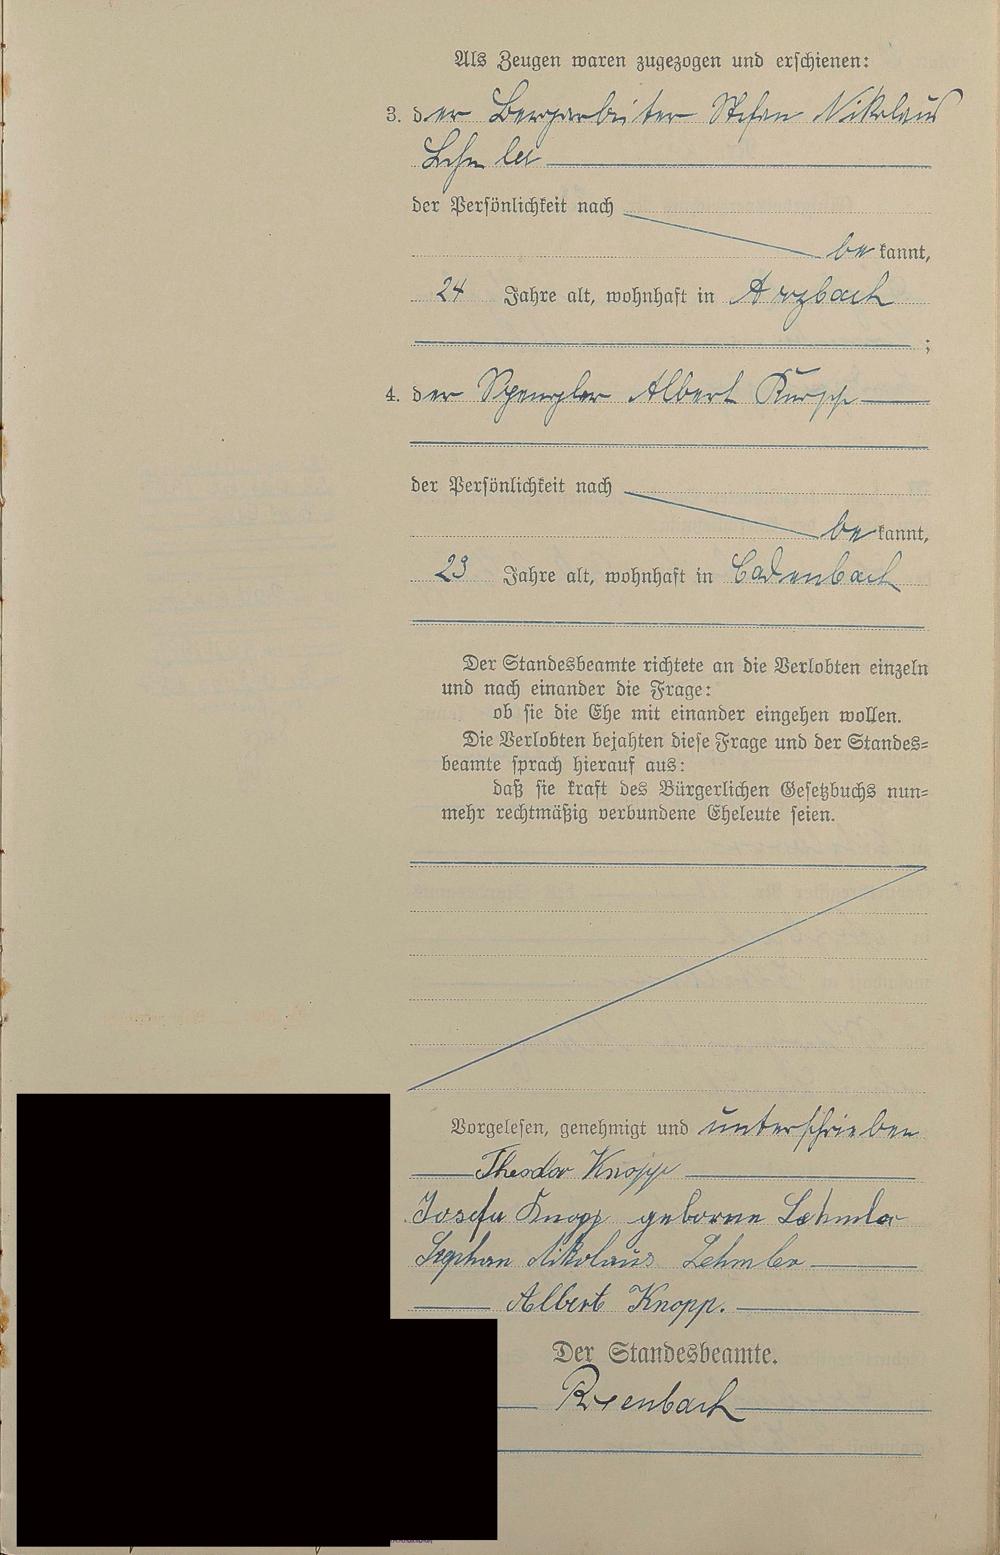 Als Zeugen waren zugezogen und erschienen:
3. der Bergarbeiter Stefan Nikolaus
Lehmler
der Persönlichkeit nach
bekannt,
24 Jahre alt, wohnhaft in Arzbach
;
4. der Spengler Albert Knopp
der Persönlichkeit nach
bekannt,
23 Jahre alt, wohnhaft in Cadenbach
Der Standesbeamte richtete an die Verlobten einzeln
und nach einander die Frage:
ob sie die Ehe mit einander eingehen wollen.
Die Verlobten bejahten diese Frage und der Standes-
beamte sprach hierauf aus:
daß sie kraft des Bürgerlichen Gesetzbuchs nun-
mehr rechtmäßig verbundene Eheleute seien.
Vorgelesen, genehmigt und unterschrieben
Theodor Knopp
Josefa Knopp geborne Lehmler
Stephan Nikolaus Lehmler
Albert Knopp.
Der Standesbeamte.